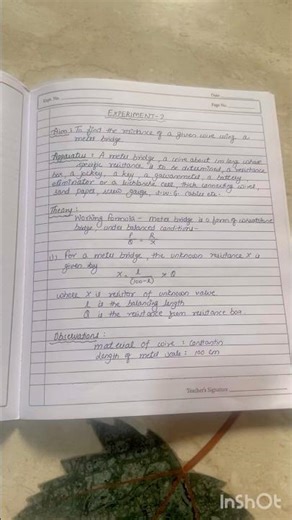 Page No.
Date
Page No.
EXPERIMENT-2
Aim : To find the resistance of a given wire using a
metre bridge.
Apparatus : A meter bridge, a wire about 1m long whose
specific resistance is to be determined, a resistance
box, a jockey, a key, a galvanometer, a battery
eliminator or a Leclanche cell, thick connecting wires,
sand paper, screw gauge,
Theory :
Working formula - Meter bridge is a form of wheatstone
bridge under balanced conditions-
(i) For a meter bridge, the unknown resistance X is
given by
X = l/(100-l) × Q
where X is resistor of unknown value
l is the balancing length
Q is the resistance from resistance box.
Observations :
material of wire : constantin
length of metre scale : 100 cm
Teacher's Signature
InShOt